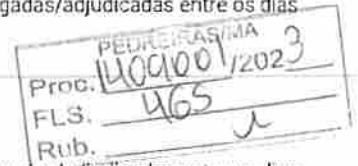 gadas/adjudicadas entre os dias
PEDREIRAS/MA
Proc. 1409001/2023
FLS. 465
Rub.